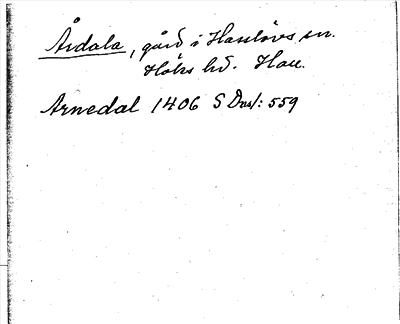 Årdala, gård i Hasslövs sn.
Höks hd. Hall.
Arnedal 1406 SDns 1: 559